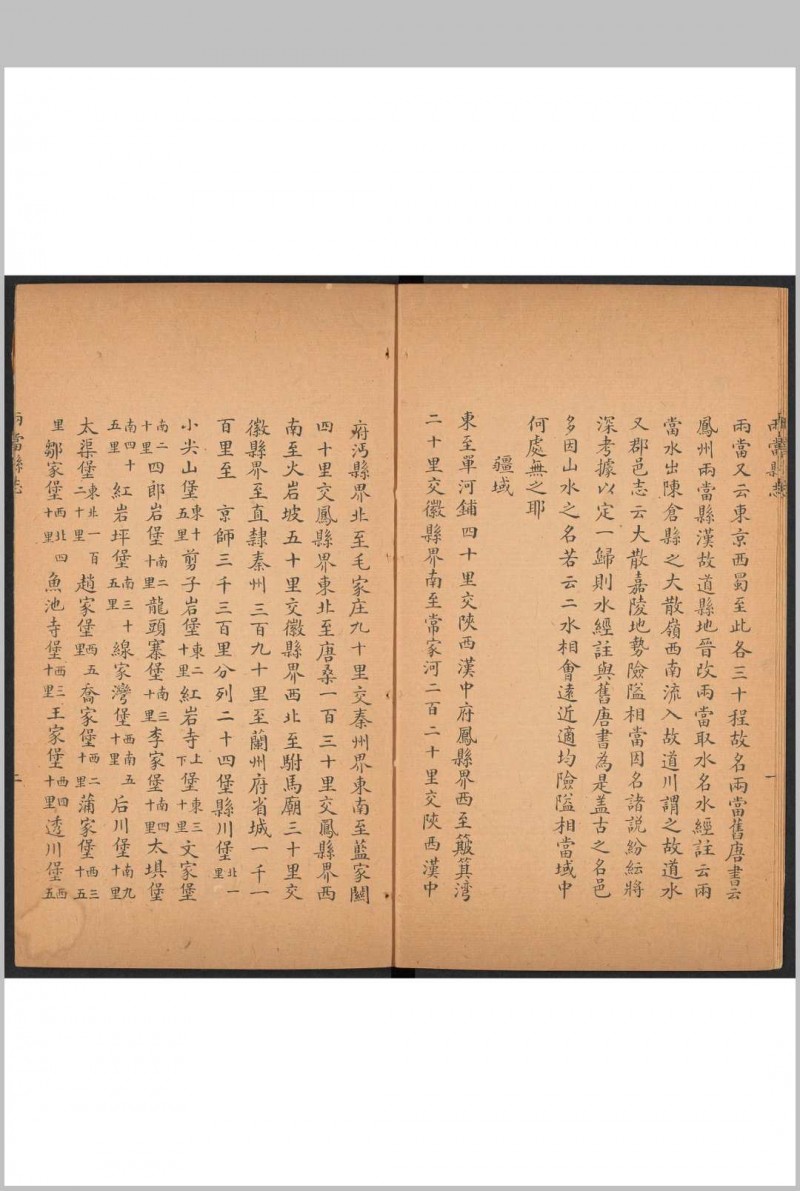 兩當縣志
兩當又云東京西蜀至此各三十程故名兩當舊唐書云
鳳州兩當縣漢故道縣地晉改兩當取水名水經註云兩
當水出陳倉縣之大散嶺西南流入故道川謂之故道水
又郡邑志云大散嘉陵地勢險隘相當因名諸說紛紜將
深考據以定一歸則水經註與舊唐書為是盖古之名邑
多因山水之名若云二水相會遠近適均險隘相當域中
何處無之耶
疆域
東至單河鋪四十里交陝西漢中府鳳縣界西至簸箕灣
二十里交徽縣界南至常家河二百二十里交陝西漢中
一
府沔縣界北至毛家庄九十里交秦州界東南至藍家關
四十里交鳳縣界東北至唐桑一百三十里交鳳縣界西
南至火岩坡五十里交徽縣界西北至駙馬廟三十里交
徽縣界至直隸秦州三百九十里至蘭州府省城一千一
百里至　京師三千三百里分列二十四堡縣川堡北一里
小尖山堡東十五里剪子岩堡東二十里紅岩寺上下堡東三十里文家堡
南二十里四郎岩堡南二十里龍頭寨堡南三十里李家堡南四十里太垻堡
南四十五里紅岩坪堡南三十五里線家灣堡西南五十里后川堡南九十里
太渠堡東北一百二十里趙家堡西五里喬家堡西二十里蒲家堡西三十五
里鄒家堡西北四十里魚池寺堡西三十里王家堡西四十里透川堡西五
兩當縣志
二